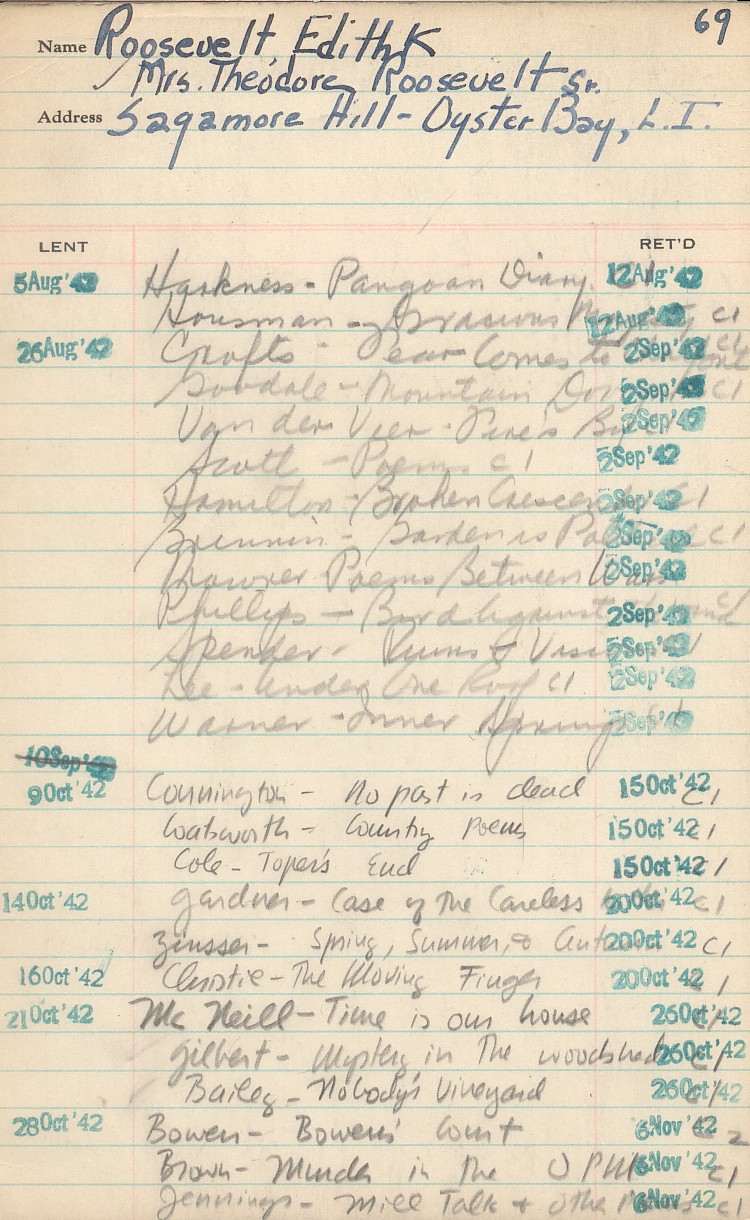 69
Name Roosevelt Edith K
Mrs. Theodore Roosevelt Sr.
Address Sagamore Hill - Oyster Bay, L.I.
LENT RET'D
5 Aug '42 Harkness - Pangoan Diary 12 Aug '42
Housman - Gracious 12 Aug '42 C1
26 Aug '42 Crofts - Fear Comes to 2 Sep '42
Mountain 2 Sep '42 C1
Van der Veer - 2 Sep '42
Scott - Poems C1 2 Sep '42
Hamilton - Broken Crescent 2 Sep '42 C1
Brinnin - Garden is Political 2 Sep '42 C1
Poems Between Wars 2 Sep '42
Phillips - Bird Against 2 Sep '42
Spender - Ruins & Visions 2 Sep '42 C1
Lee - Under One Roof C1 2 Sep '42
Warner - Inner Springs 2 Sep '42
10 Sep '42
9 Oct '42 Connington - No past is dead 15 Oct '42 C1
Coatsworth - Country Poems 15 Oct '42 C1
Cole - Toper's End 15 Oct '42 C1
14 Oct '42 Gardner - Case of the Careless 20 Oct '42 C1
Zinsser - Spring, Summer, & Autumn 20 Oct '42 C1
16 Oct '42 Christie - The Moving Finger 20 Oct '42 C1
21 Oct '42 Mc Neill - Time is our house 26 Oct '42 C1
Gilbert - Mystery in The woodshed 26 Oct '42 C1
Bailey - Nobody's Vineyard 26 Oct '42 C1
28 Oct '42 Bowen - Bowen's Court 6 Nov '42 C 2
Brown - Murder in the OPM 6 Nov '42 C1
Jennings - Mill Talk & Other Poems 6 Nov '42 C1